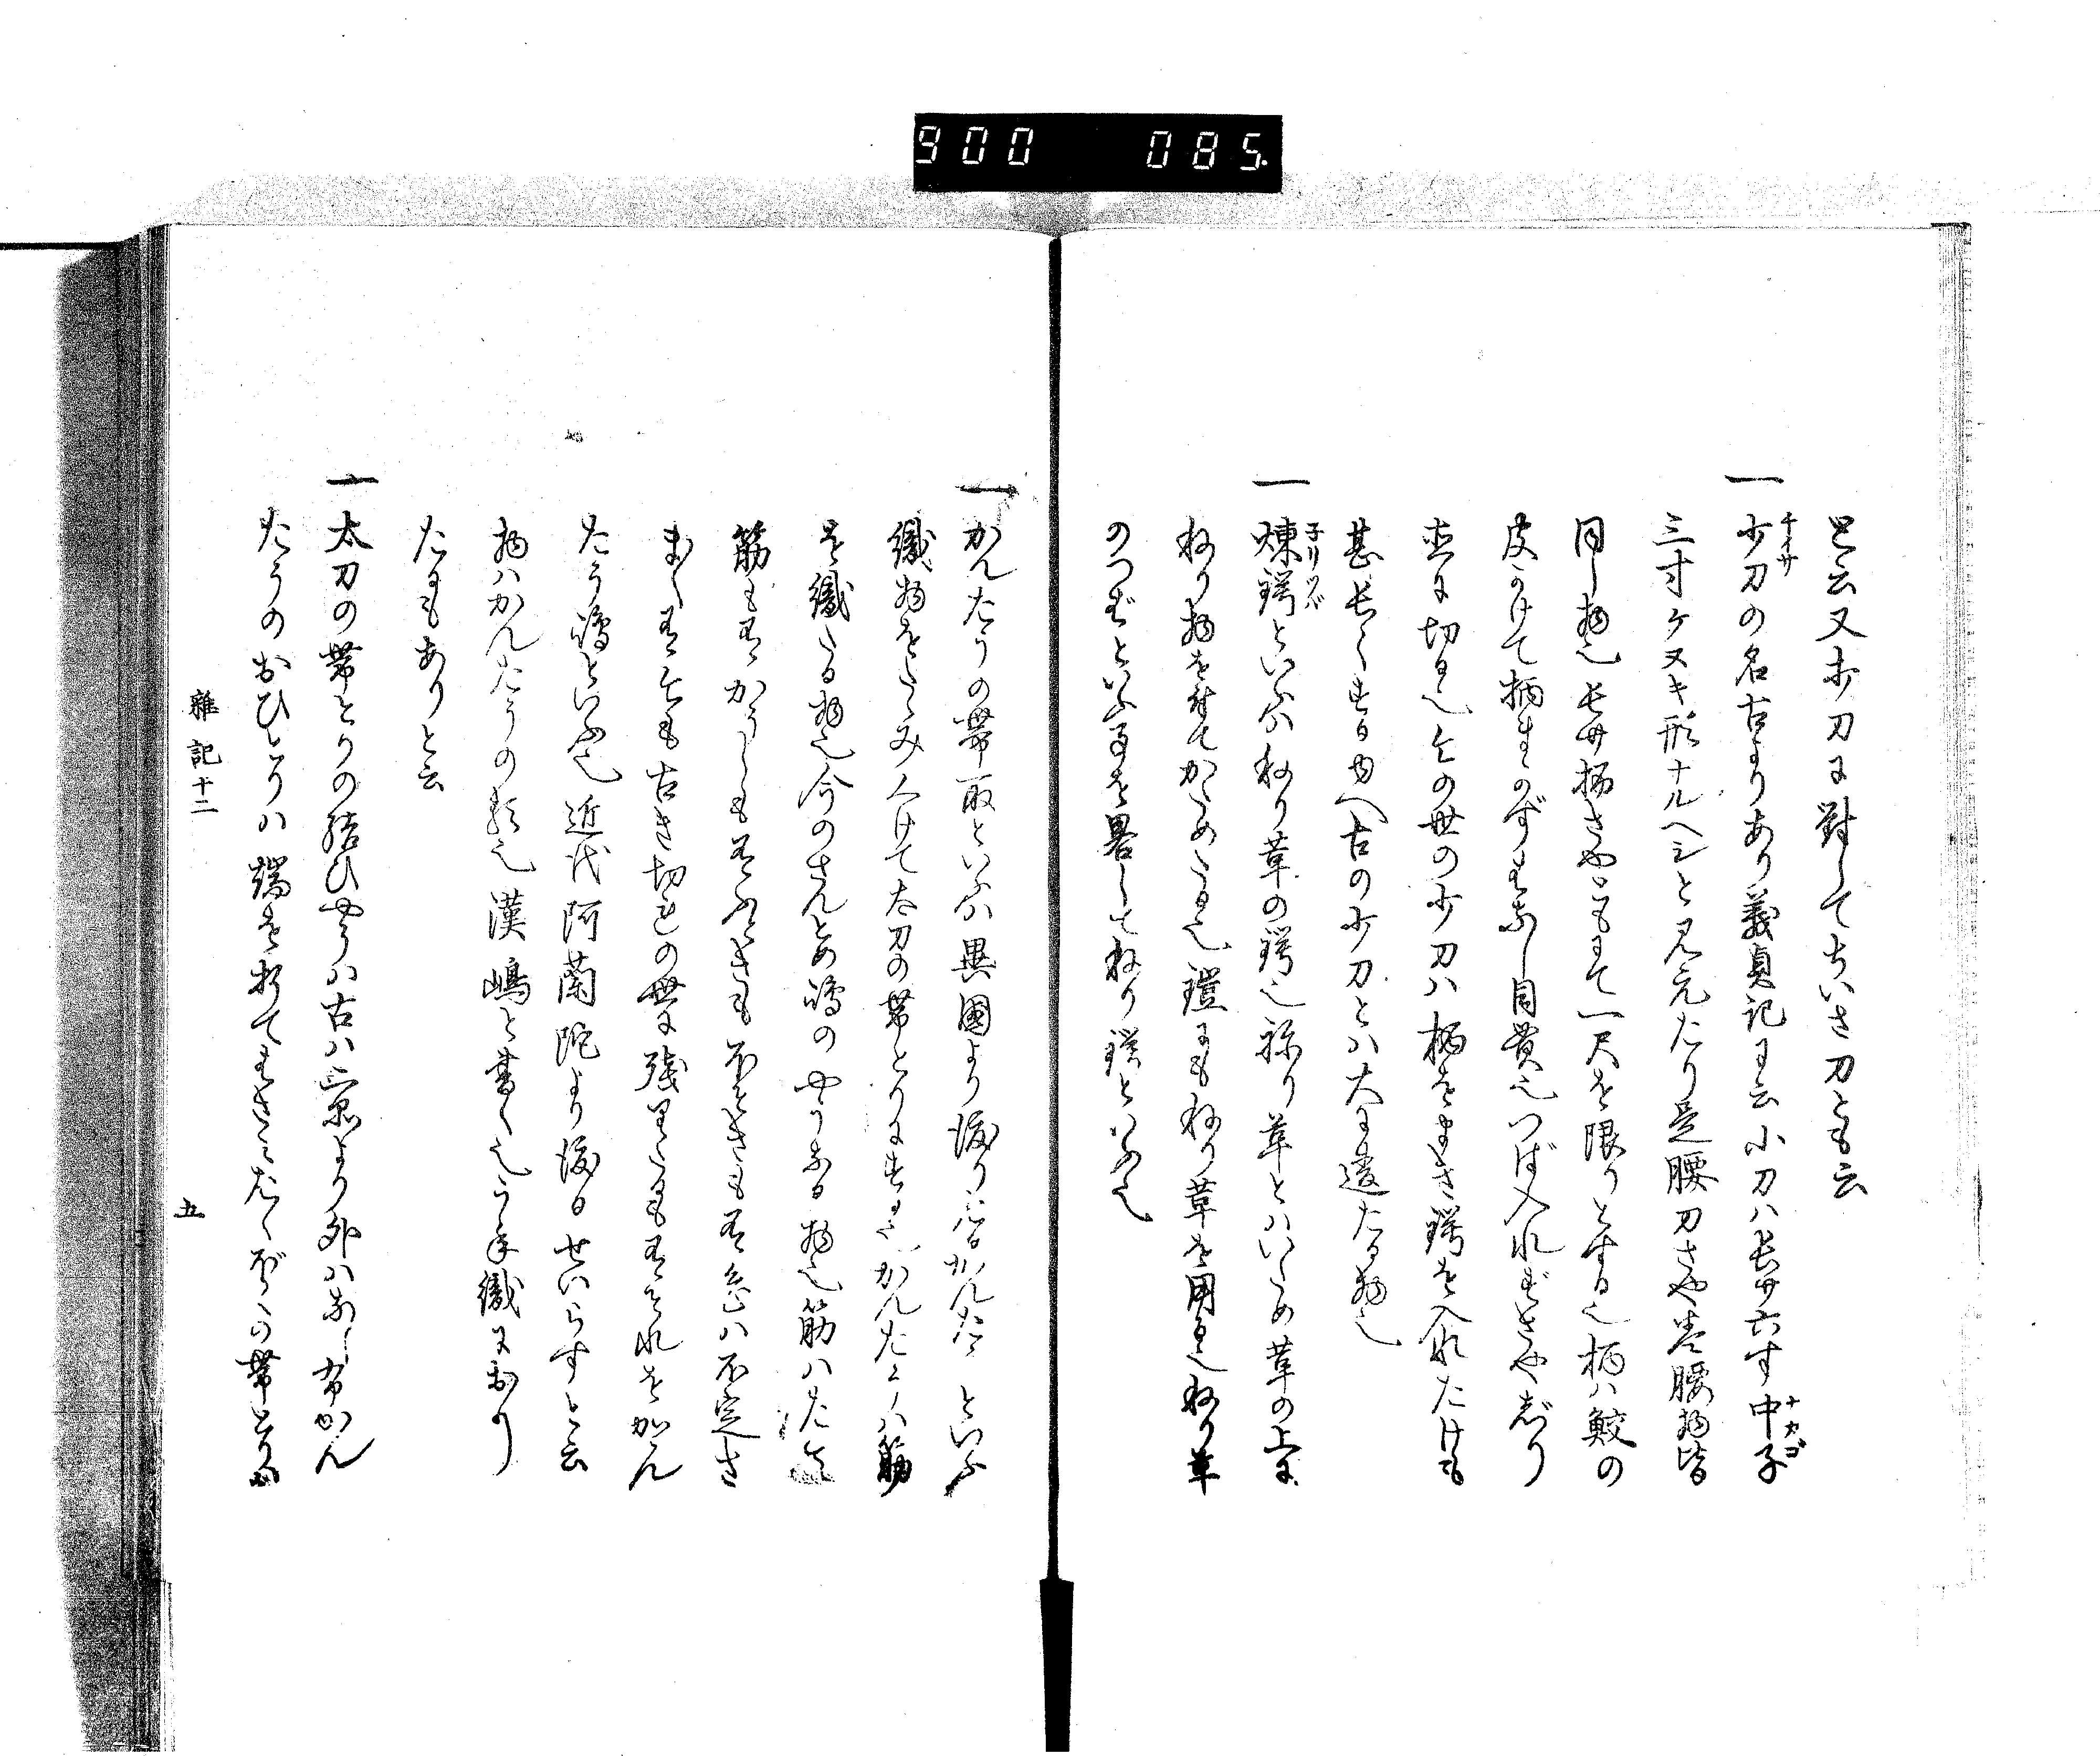 900 085.
と云又少刀に對してちいさ刀とも云
一 少刀の名古よりあり義貞記に云小刀ハ長サ六寸中子
チイサ
ナカゴ
三寸ケヌキ形ナルヘシと見元たり是腰刀さや巻腰物皆
同し物也長サ柄さやともにて一尺を限りとする也柄ハ鮫の
皮かけて柄まきのずまなし目貫也つば入れずさやじり
直に切る也今の世の少刀ハ柄をまき鍔を入れたけも
甚長くする由へ古の少刀とハ大に違たる物也
一 煉鍔といふハねり革の鍔也練り革とハいため革の上に
子リツバ
ねり物を付てかためたる也鎧にもねり革を用る也ねり革
のつばといふ事を畧してねり鍔といふ也
一 かんたうの帯取といふハ異國より渡りたるかんたうといふ
織物をたゝみくけて太刀の帯とりにする也かんたうハ筋
を織たる物也今のさんとめ嶋のやうなる物也筋ハたて
筋も有かうしも有ふときも不ときも有色ハ不定さ
まく有今も古き切れの世に残りたるも有それをかん
たう嶋といふ也近代阿蘭陀より渡るせいらすと云
物ハかんたうの類也漢嶋と書く也うね織におり
たるもありと云
一 太刀の帯とりの結ひやうハ古ハ
たうのおひとりハ端を折て
雜記十二
五